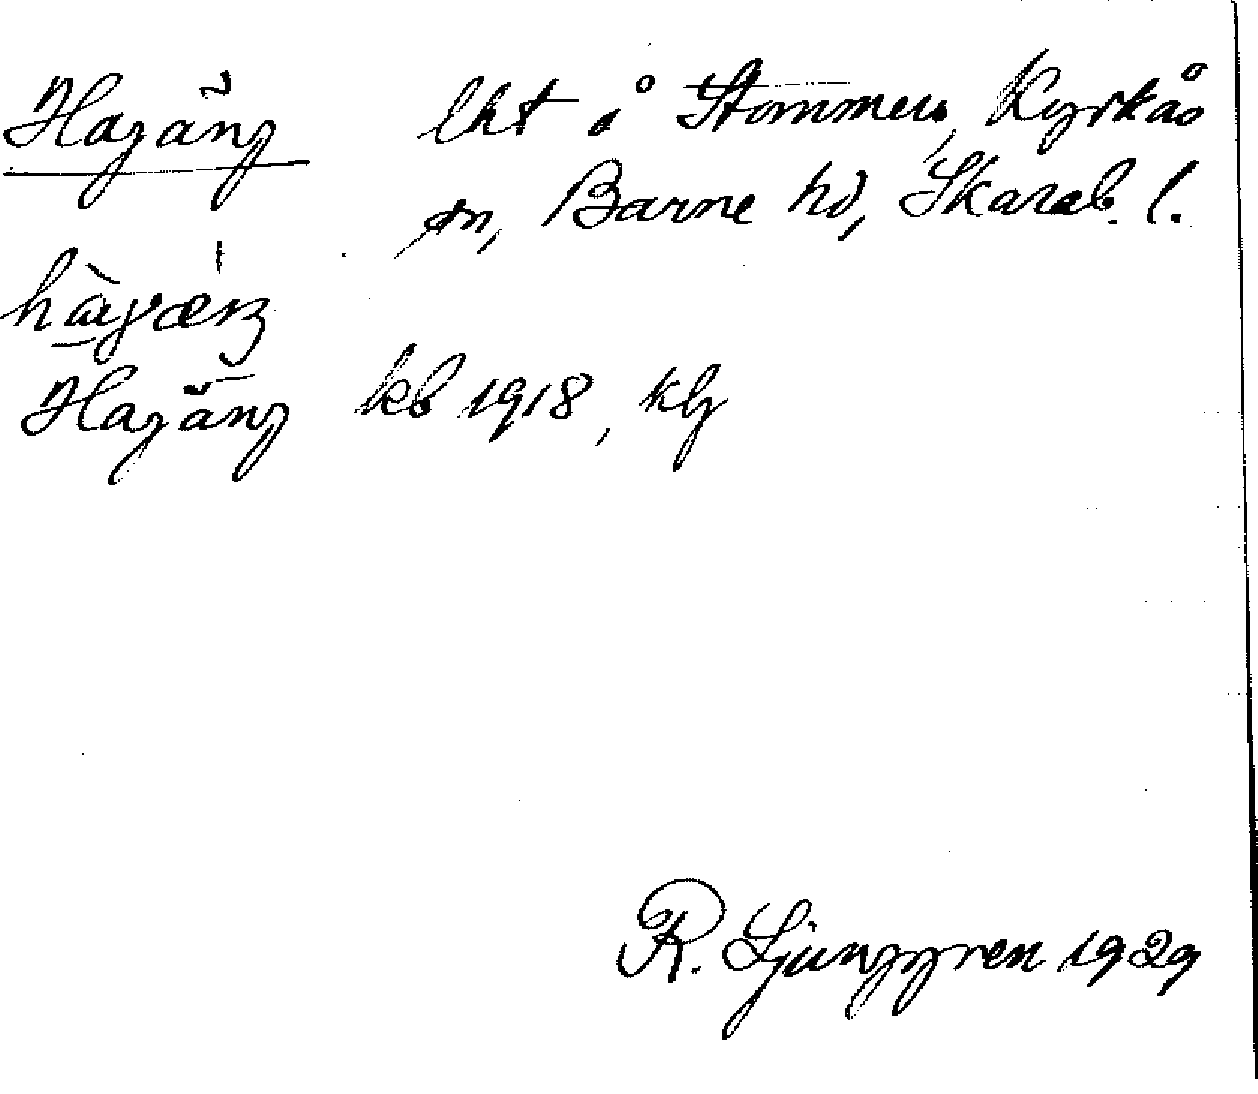 Hagäng lht å Stommen, Kyrkås
sn, Barne hd, Skarab. l.
Hagäng kb 1918, klg
R. Ljunggren 1929